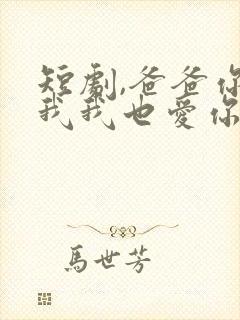 短劇,爸爸你
我我也愛你
馬世芳